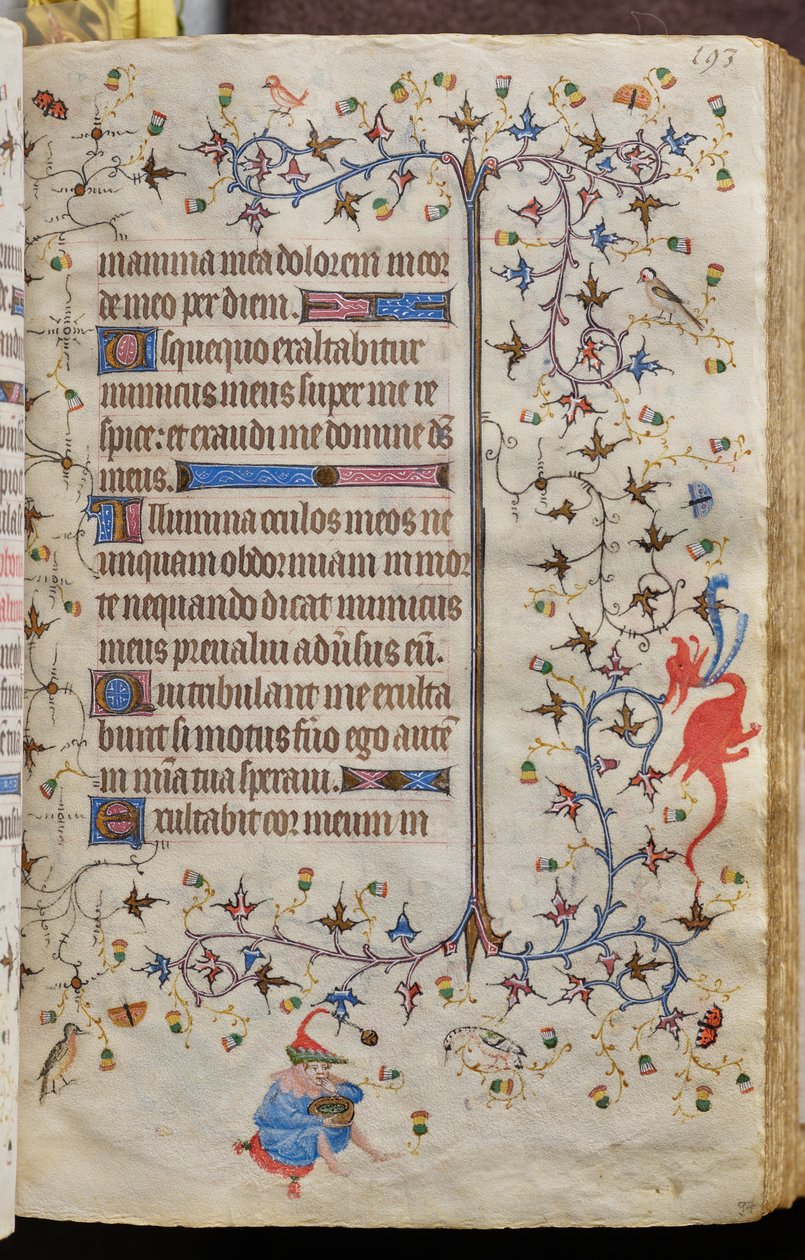 193
mamma mea dolorem in cor
de meo per diem.
Usquequo exaltabitur
inimicus meus super me re
spice: et exaudi me domine ds̄
meus.
Illumina oculos meos ne
unquam obdormiam in mor
te nequando dicat inimicus
meus preualui adūsus eū.
Qui tribulant me exulta
bunt si motus fūo ego autē
in mīa tua speraui.
Exultabit cor meum in